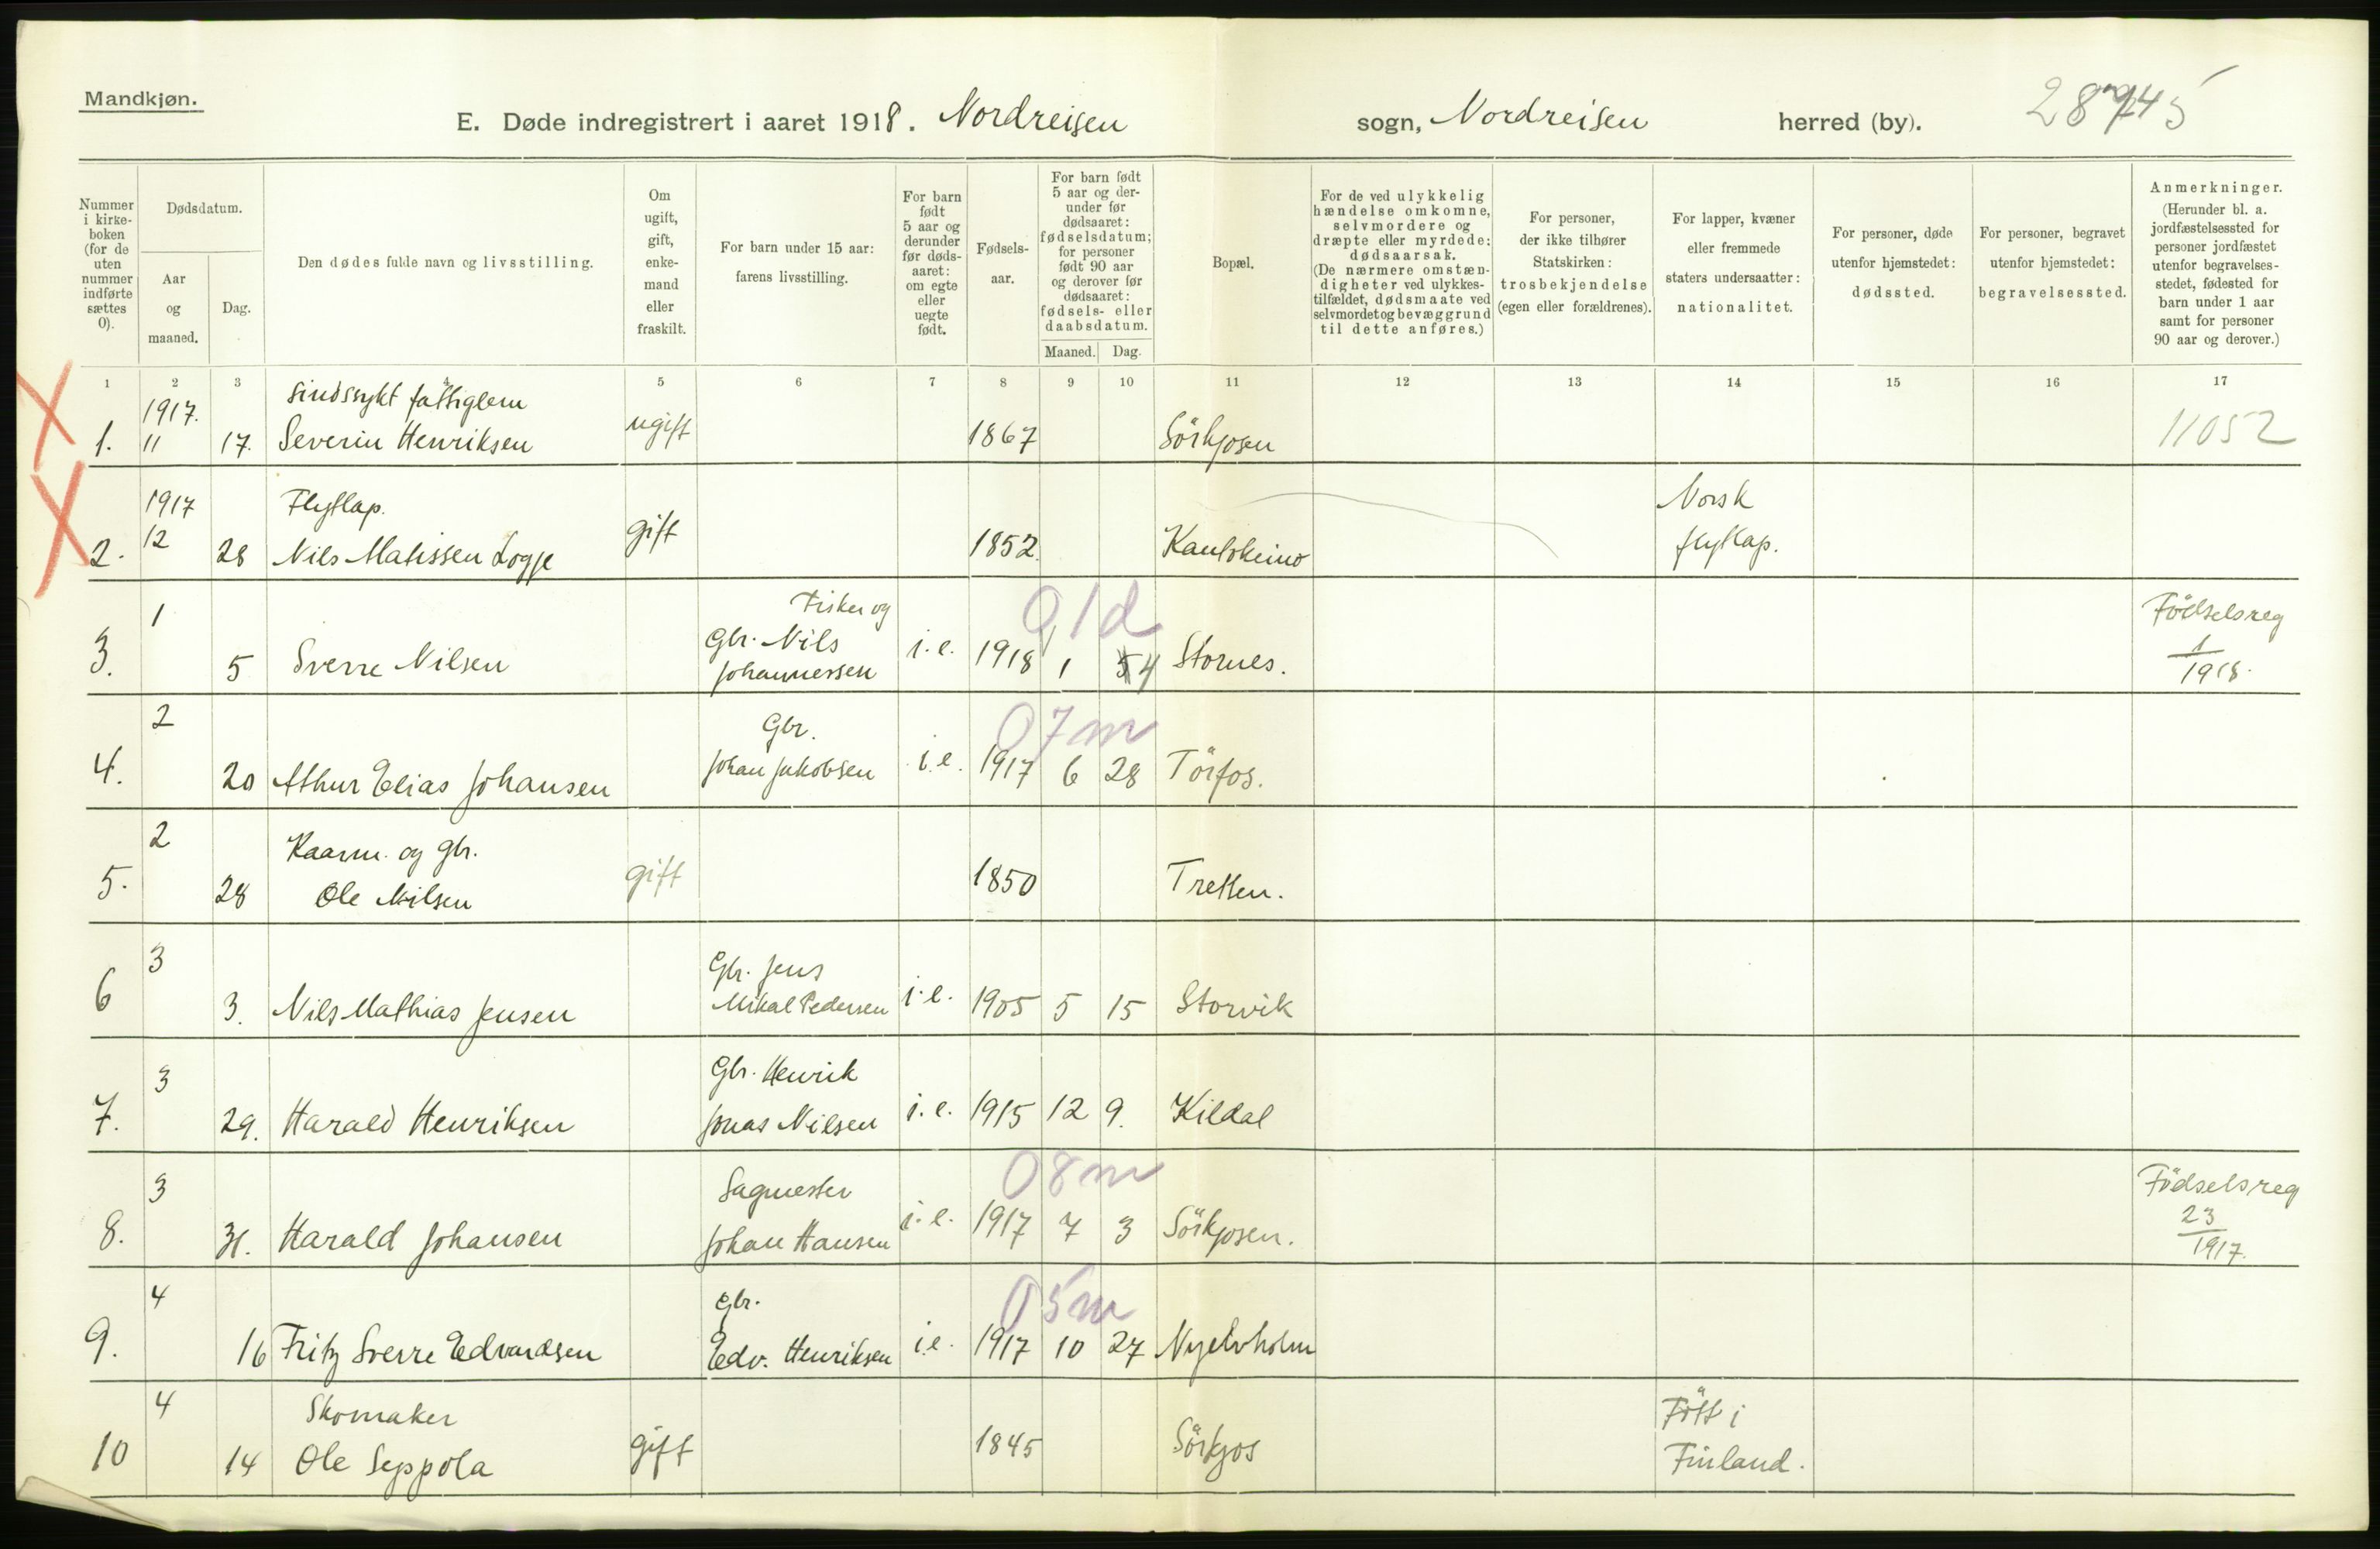 Mandkjøn.
E. Døde indregistrert i aaret 1918. Nordreisen sogn, Nordreisen herred (by).
Nummer i kirke- boken (for de uten nummer indførte sættes 0).
Dødsdatum.
Aar og maaned.
Dag.
Den dødes fulde navn og livsstilling.
Om ugift, gift, enke- mand eller fraskilt.
For barn under 15 aar: farens livsstilling.
For barn født 5 aar og derunder før døds- aaret: om egte eller uegte født.
Fødsels- aar.
For barn født 5 aar og der- under før dødsaaret: fødselsdatum; for personer født 90 aar og derover før dødsaaret: fødsels- eller daabsdatum.
Maaned. Dag.
Bopæl.
For de ved ulykkelig hændelse omkomne, selvmordere og dræpte eller myrdede: dødsaarsak. (De nærmere omstæn- digheter ved ulykkes- tilfældet, dødsmaate ved selvmordet og bevæggrund til dette anføres.)
For personer, der ikke tilhører Statskirken: trosbekjendelse (egen eller forældrenes).
For lapper, kvæner eller fremmede staters undersaatter: nationalitet.
For personer, døde utenfor hjemstedet: dødssted.
For personer, begravet utenfor hjemstedet: begravelsessted.
Anmerkninger. (Herunder bl. a. jordfæstelsessted for personer jordfæstet utenfor begravelses- stedet, fødested for barn under 1 aar samt for personer 90 aar og derover.)
1 2 3 4 5 6 7 8 9 10 11 12 13 14 15 16 17
1917. sindssykt fattiglem
1. 11 17. Severin Henriksen ugift 1867 Sörkjosen 11052
1917 Flytlap. Norsk
2. 12 28 Nils Matissen Logje gift 1852. Kautokeino flytlap.
1 Fisker og 0 1 d Födselsreg
3. 5 Sverre Nilsen Gbr. Nils Johannessen i.e. 1918 1 4 Stornes. 1/1918.
2 Gbr. 0 7 m
4. 20 Athur Elias Johansen Johan Jakobsen i.e. 1917 6 28 Törfos.
2 Kaarm. og gbr.
5. 28 Ole Nilsen gift 1850 Tretten.
3 Gbr. Jens
6 3. Nils Mathias Jensen Mikal Pedersen i.e. 1905 5 15 Storvik
3 Gbr. Henrik
7. 29. Harald Henriksen Jonas Nilsen i.e. 1915 12 9. Kildal
3 Sagmester 0 8 m Födselsreg
8. 31. Harald Johansen Johan Hansen i.e. 1917 7 3 Sörkjosen. 23/1917.
4 Gbr. 0 5 m
9. 16 Fritz Sverre Edvardsen Edv. Henriksen i.e. 1917 10 27 Nyelvholm
4 Skomaker Fött i
10 14 Ole Seppola gift 1845 Sörkjos Finland.